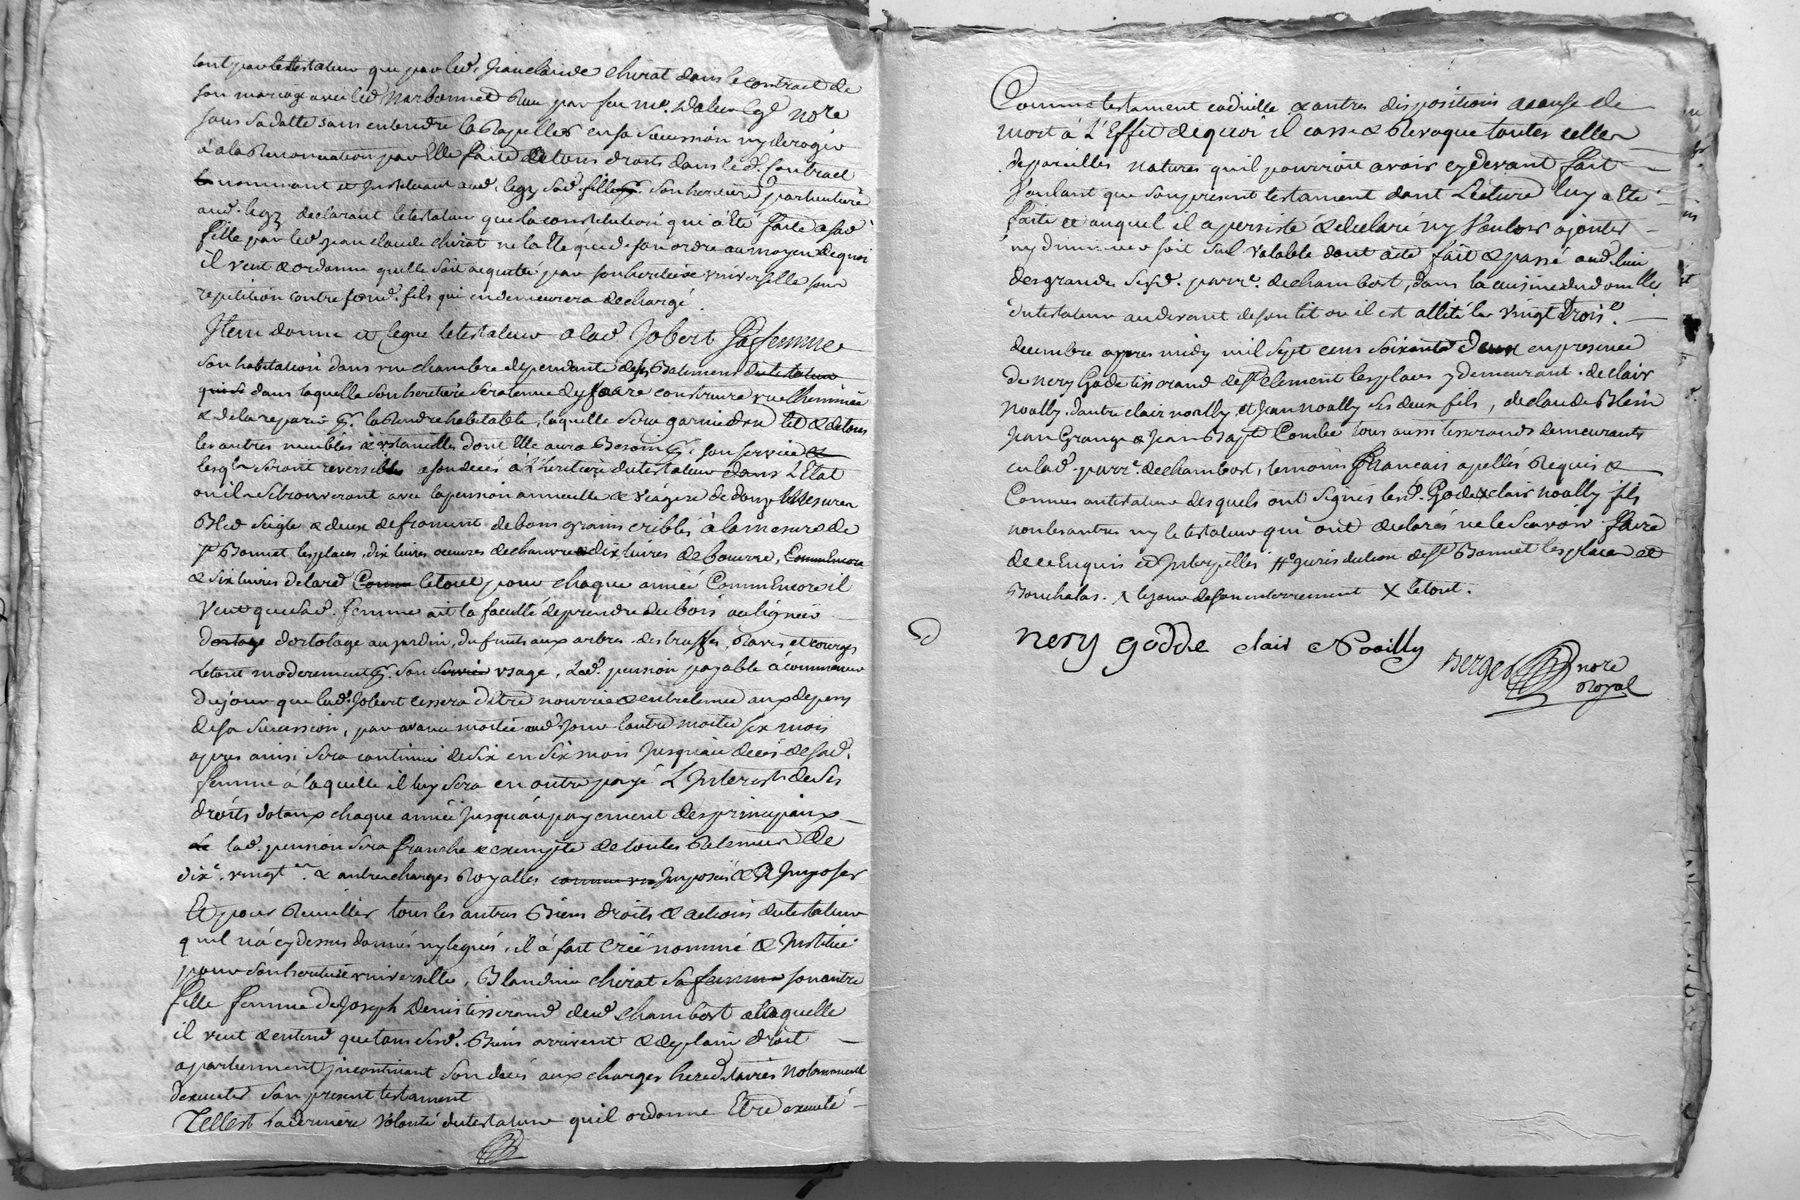 tant par le testateur que par led. Jean claude chirat dans le contract de
son mariage avec led Narbonnet Reçu par feu me. Dolier legd nore
sous sa datte sans entendre la Rapeller en sa sucession ny deroger
a la Renonciation par Elle faite de tous droits dans led. Contract
nommant et Instituant aud. legz sad. fille pr. son heritiere particuliere
aud. legz declarant le testateur que la constitution qui a Eté faite a sad
fille par led Jean claude chirat ne la Eté que de son ordre au moyen de quoi
il veut & ordonne quelle soit acquittée par son heritiere universelle sans
repetition contre sond. fils qui en demeurera dechargé
Item donne et legue le testateur a lad Jobert Sa femme
son habitation dans une chambre dependante des Batiments du testateur
dans laquelle son heritiere sera tenue de faire construire une cheminée
& de la reparer pr. la Rendre habitable, laquelle sera garnie d'un lit & de tous
les autres meubles & ustancilles dont Elle aura Besoin pr. son service &
lesqls seront reversibles a son deces à L'heritiere du testateur dans L'Etat
ou ils se trouveront avec la pension annuelle & viagere de douze Mesures
Bled Seigle & deux de froment de bons grains criblés à la mesure de
st Bonnet les places, dix livres oeuvres de chanvre & dix livres de beurre, Comm Encore
& six livres de lard Comme le tout pour chaque année Comm Encore il
Veut que sad. femme ait la faculté de prendre du bois au lignier
dortage dortolage au jardin, du fruits aux arbres des truffes, Raves et courges
le tout moderement pr. son service usage, Lad. pension payable à commencer
du jour que lad. Jobert cessera d'être nourrie & entretenue aux depens
de sa sucession, par avance moitié aud Jour lautre moitié six mois
apres ainsi sera continué de six en six mois Jusqu'au deces de sad.
femme à laquelle il luy sera en outre payé L'Interest de ses
droits dotaux chaque année Jusqu'au payement des principaux
lad. pension sera franche & exempte de toutes Retenues de
dixe. vingten. & autres charges Royalles Imposées & A Imposer
Et pour Recuillir tous les autres Biens droits & actions du testateur
quil n'a cy dessus donnés ny legués, il à fait Créé nommé & Institué
pour son heritiere universelle, Blandine chirat sa femme son autre
fille femme de Joseph Denis tisserand dud. chambost a laquelle
il veut & entend que tous sesd. Biens arrivent & de plain droit
apartiennent incontinant son deces aux charges hereditaires notamment
d'executer son present testament
Telle est la derniere volonté du testateur quil ordonne Etre executé
Comme testament codicille & autres dispositions a cause de
mort à L'Effet de quoi il casse & Revoque toutes celles
de pareilles natures quil pourroit avoir cy devant fait
voulant que son present testament dont Lecture luy a Eté
faite et auquel il a persisté & declaré ny Vouloir ajouter
ny diminuer soit seul valable dont acte fait & passé aud lieu
des grandes, susd. parre. de chambost, dans la cuisine du domille.
du testateur au devant de son lit ou il est allité le vingt troise.
decembre apres midy mil sept cens soixante deux en presence
de nery Gode tisserand de st Clement les places y demeurant, de clair
noally, d'autre clair noally et Jean noally ses deux fils, de claude Blein
Jean Grange & Jean Bapt Combe tous aussi tisserands demeurants
en lad. parre. de chambost, temoins francais apellés Requis &
Connus au testateur desquels ont signés lesd. Gode & clair noally fils
non les autres ny le testateur qui ont declarés ne le scavoir faire
de ce Enquis et Interpellés jurisdiction de st Bonnet les places et
Bouchalas. X le jour de son enterrement X le tout.
nery godde clair Noailly
Berger nore
Royal